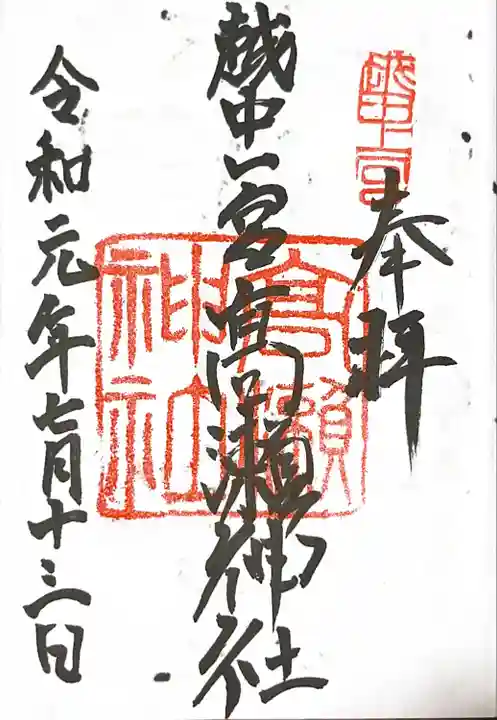 奉拝
越中一宮
越中一宮髙瀬神社
高瀬神社
令和元年七月十三日